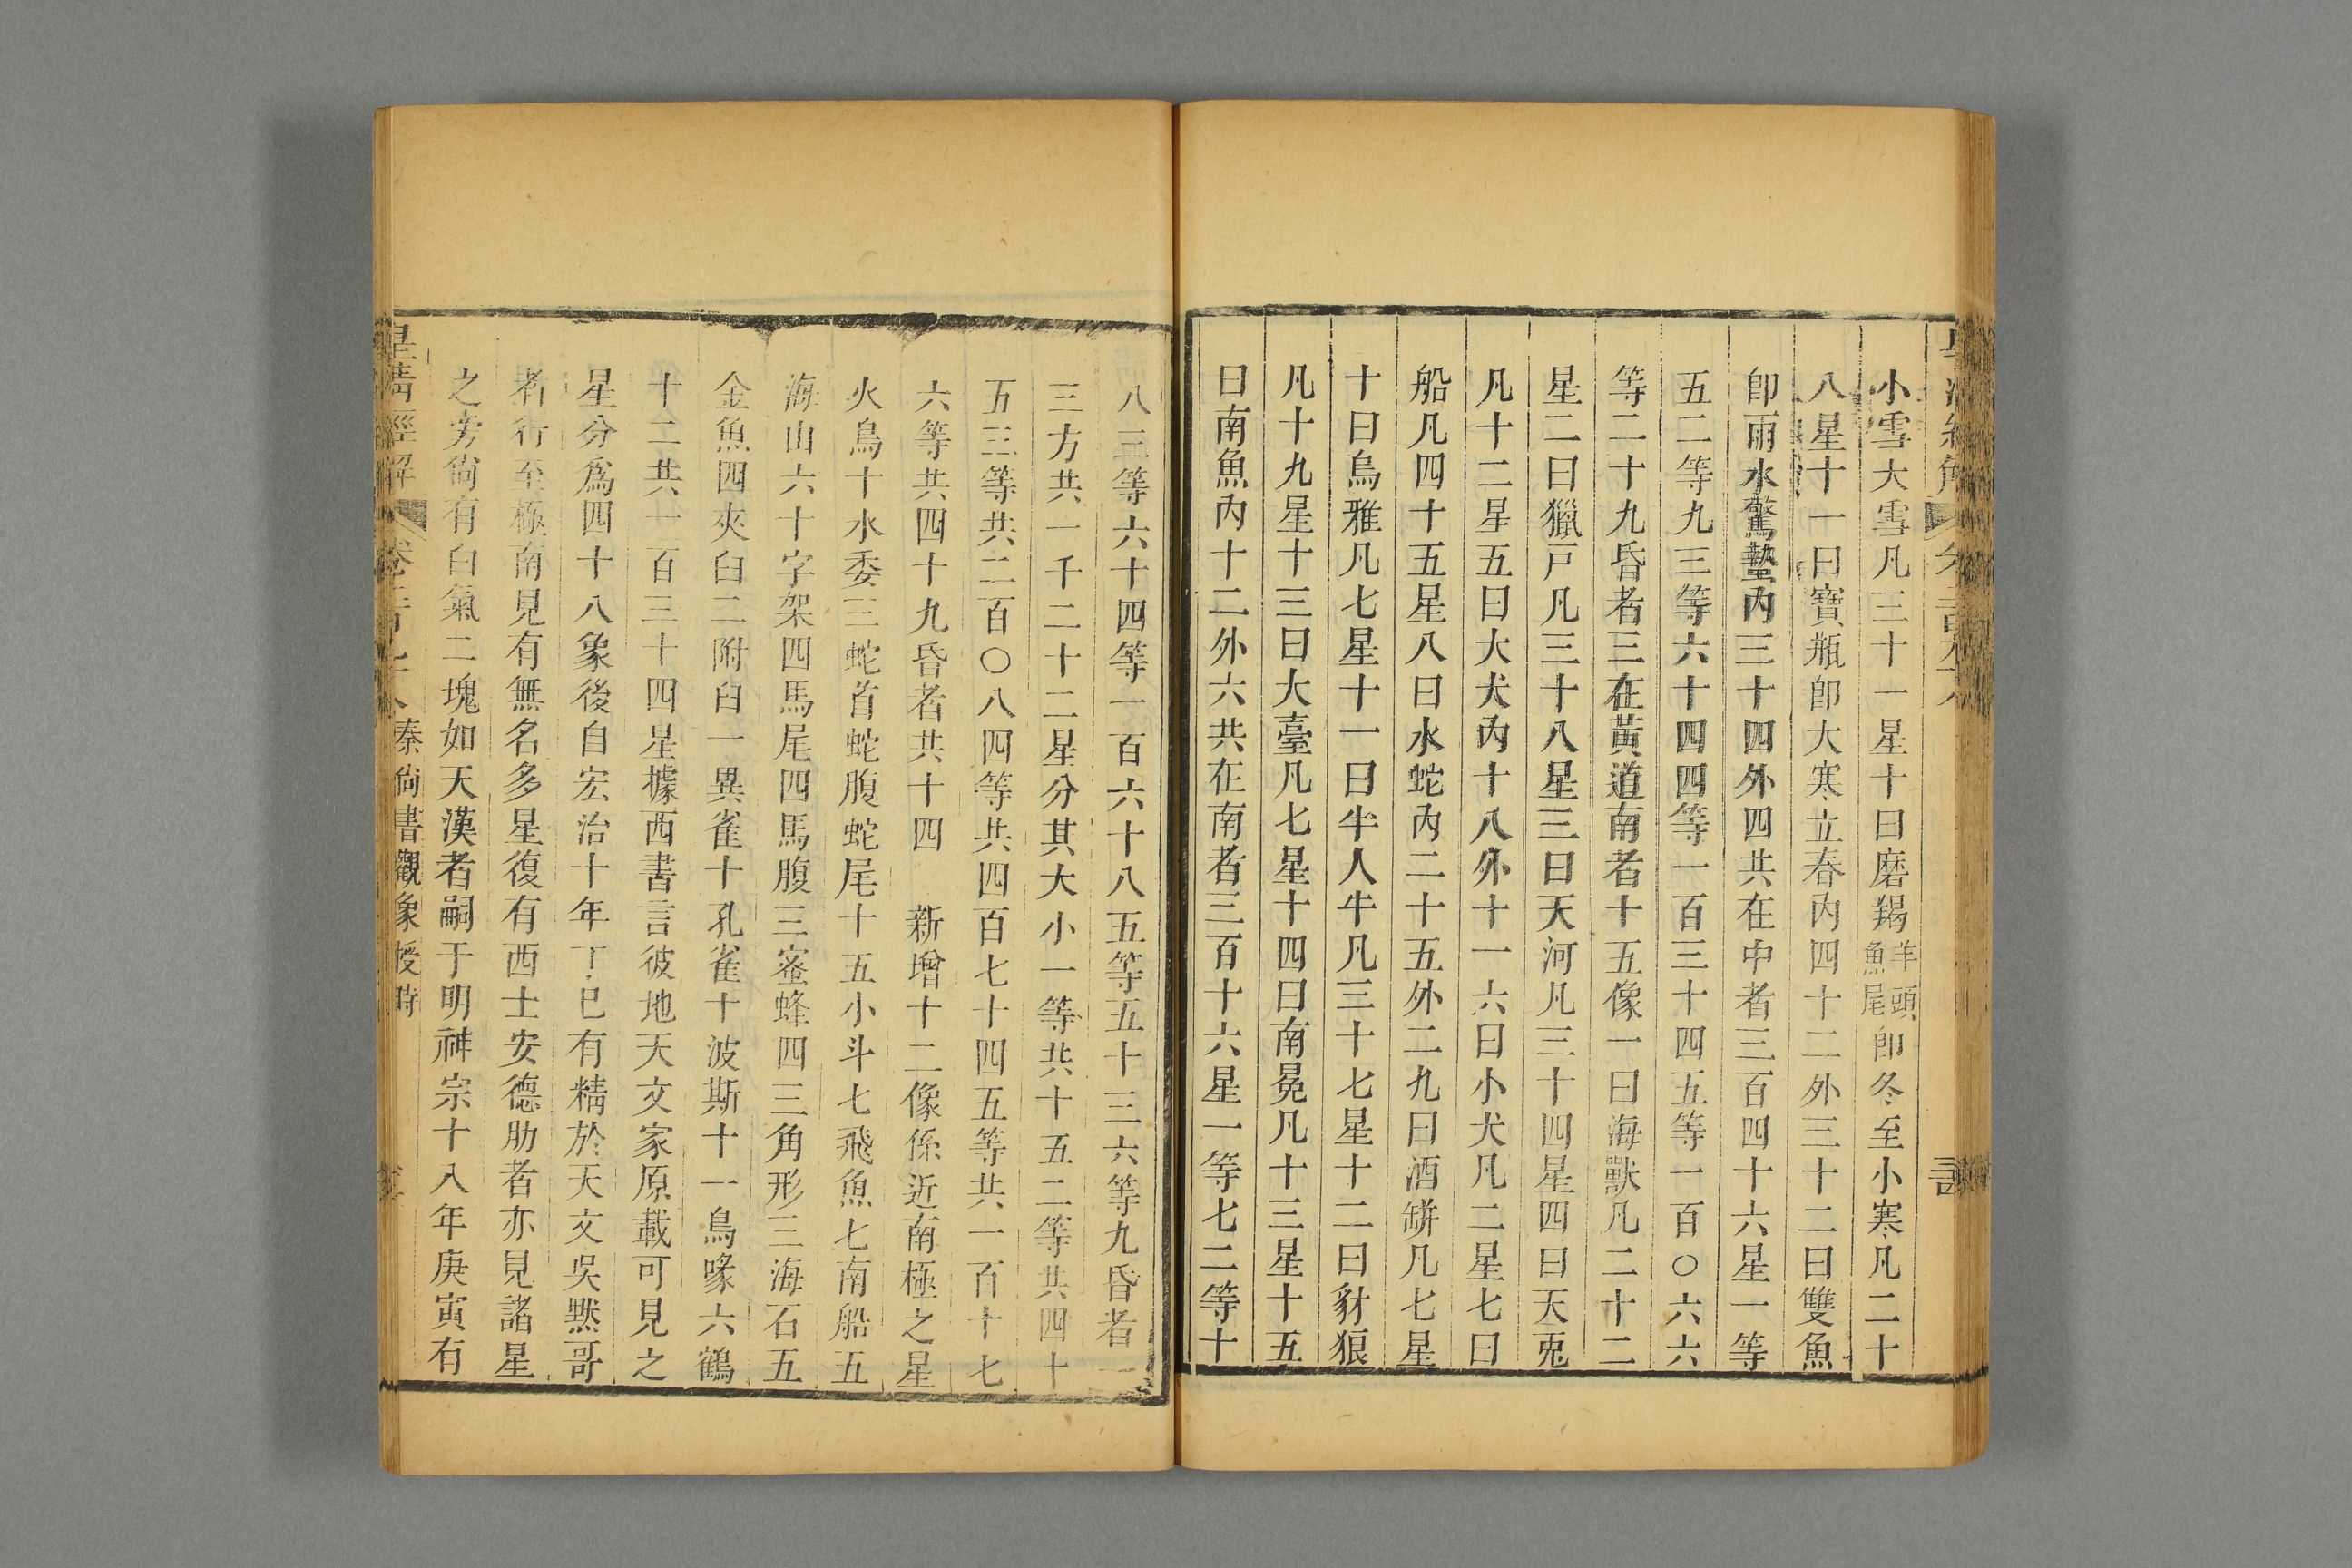 小雪大雪凡三十一星十曰磨羯羊頭魚尾卽冬至小寒凡二十
八星十一曰寶瓶卽大寒立春內四十二外三十二曰雙魚
卽雨水驚蟄內三十四外四共在中者三百四十六星一等
五二等九三等六十四四等一百三十四五等一百〇六六
等二十九昏者三在黃道南者十五像一曰海獸凡二十二
星二曰獵戸凡三十八星三曰天河凡三十四星四曰天兎
凡十二星五曰大犬內十八外十一六曰小犬凡二星七曰
船凡四十五星八曰水蛇內二十五外二九曰酒缾凡七星
十曰烏雅凡七星十一曰半人牛凡三十七星十二曰豺狼
凡十九星十三曰大臺凡七星十四曰南冕凡十三星十五
曰南魚內十二外六共在南者三百十六星一等七二等十
八三等六十四等一百六十八五等五十三六等九昏者一
三方共一千二十二星分其大小一等共十五二等共四十
五三等共二百〇八四等共四百七十四五等共一百十七
六等共四十九昏者共十四 新增十二像係近南極之星
火鳥十水委三蛇首蛇腹蛇尾十五小斗七飛魚七南船五
海山六十字架四馬尾四馬腹三蜜蜂四三角形三海石五
金魚四夾白二附白一異雀十孔雀十波斯十一鳥喙六鶴
十二共一百三十四星據西書言彼地天文家原載可見之
星分爲四十八象後自宏治十年丁巳有精於天文吳黙哥
者行至極南見有無名多星復有西士安德肋者亦見諸星
之旁尙有白氣二塊如天漢者嗣于明神宗十八年庚寅有
皇淸經解 秦尙書觀象授時